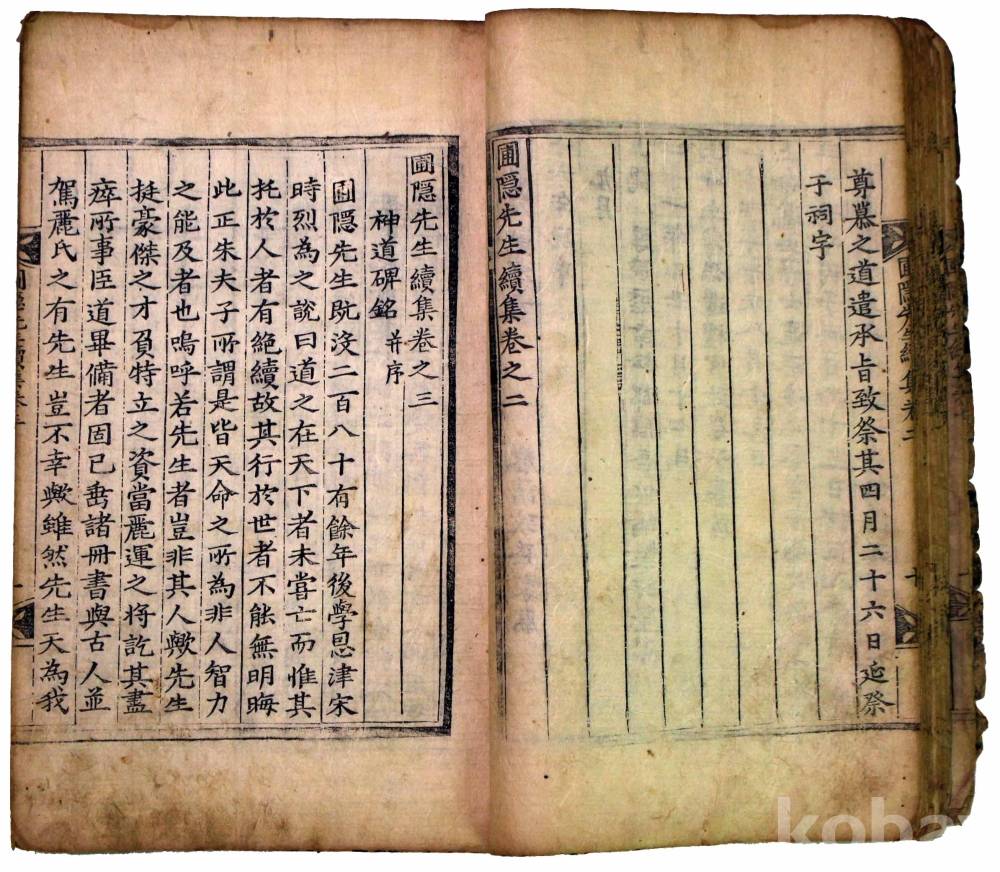 尊慕之道遣承旨致祭其四月二十六日延祭
于祠宇
圃隠先生續集卷之二
圃隠先生續集卷之三
神道碑銘 幷序
圃隠先生既沒二百八十有餘年後學恩津宋
時烈為之說曰道之在天下者未嘗亡而惟其
托於人者有絕續故其行於世者不能無明晦
此正朱夫子所謂是皆天命之所為非人智力
之能及者也嗚呼若先生者豈非其人歟先生
挺豪傑之才負特立之資當麗運之將訖其盡
瘁所事臣道畢備者固已垂諸冊書與古人並
駕麗氏之有先生豈不幸歟雖然先生天為我
kobay